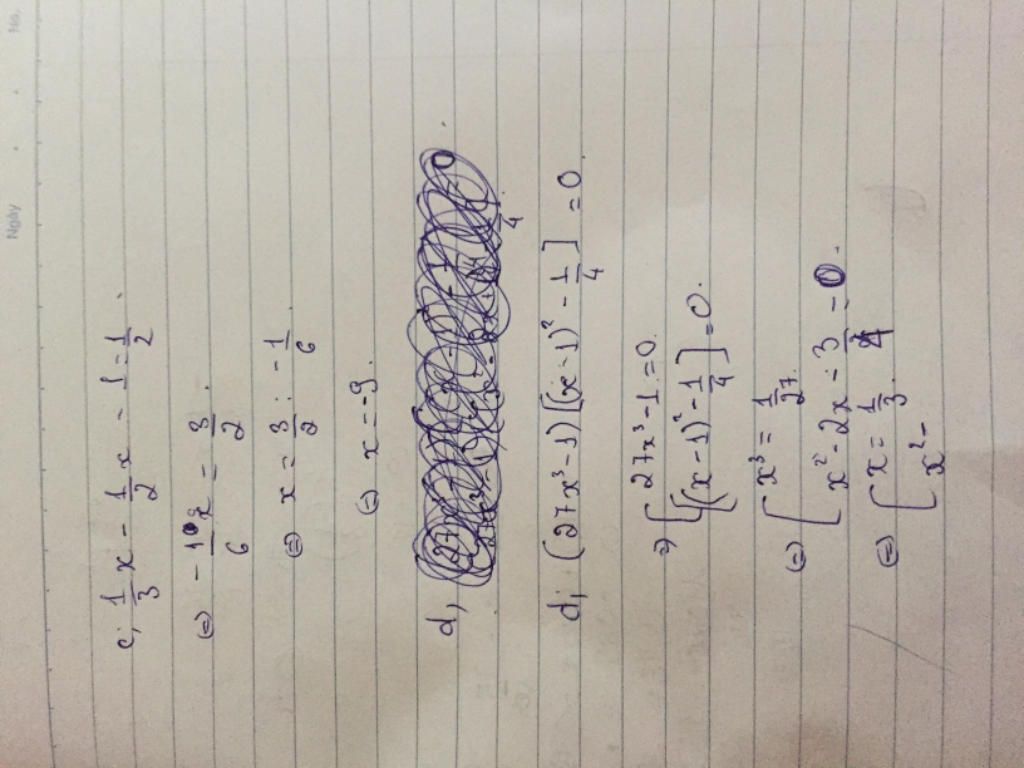 Ngày . . No.
c, 1/3 x - 1/2 x - 1 = 1/2
(=) - 1/6 x = 3/2
(=) x = 3/2 : - 1/6
(=) x = -9
d,
d, (27x³ - 1)[(x - 1)² - 1/4] = 0
=) [ 27x³ - 1 = 0
[(x - 1)² - 1/4] = 0
(=) [ x³ = 1/27
x² - 2x - 3/4 = 0
(=) [ x = 1/3
x² -